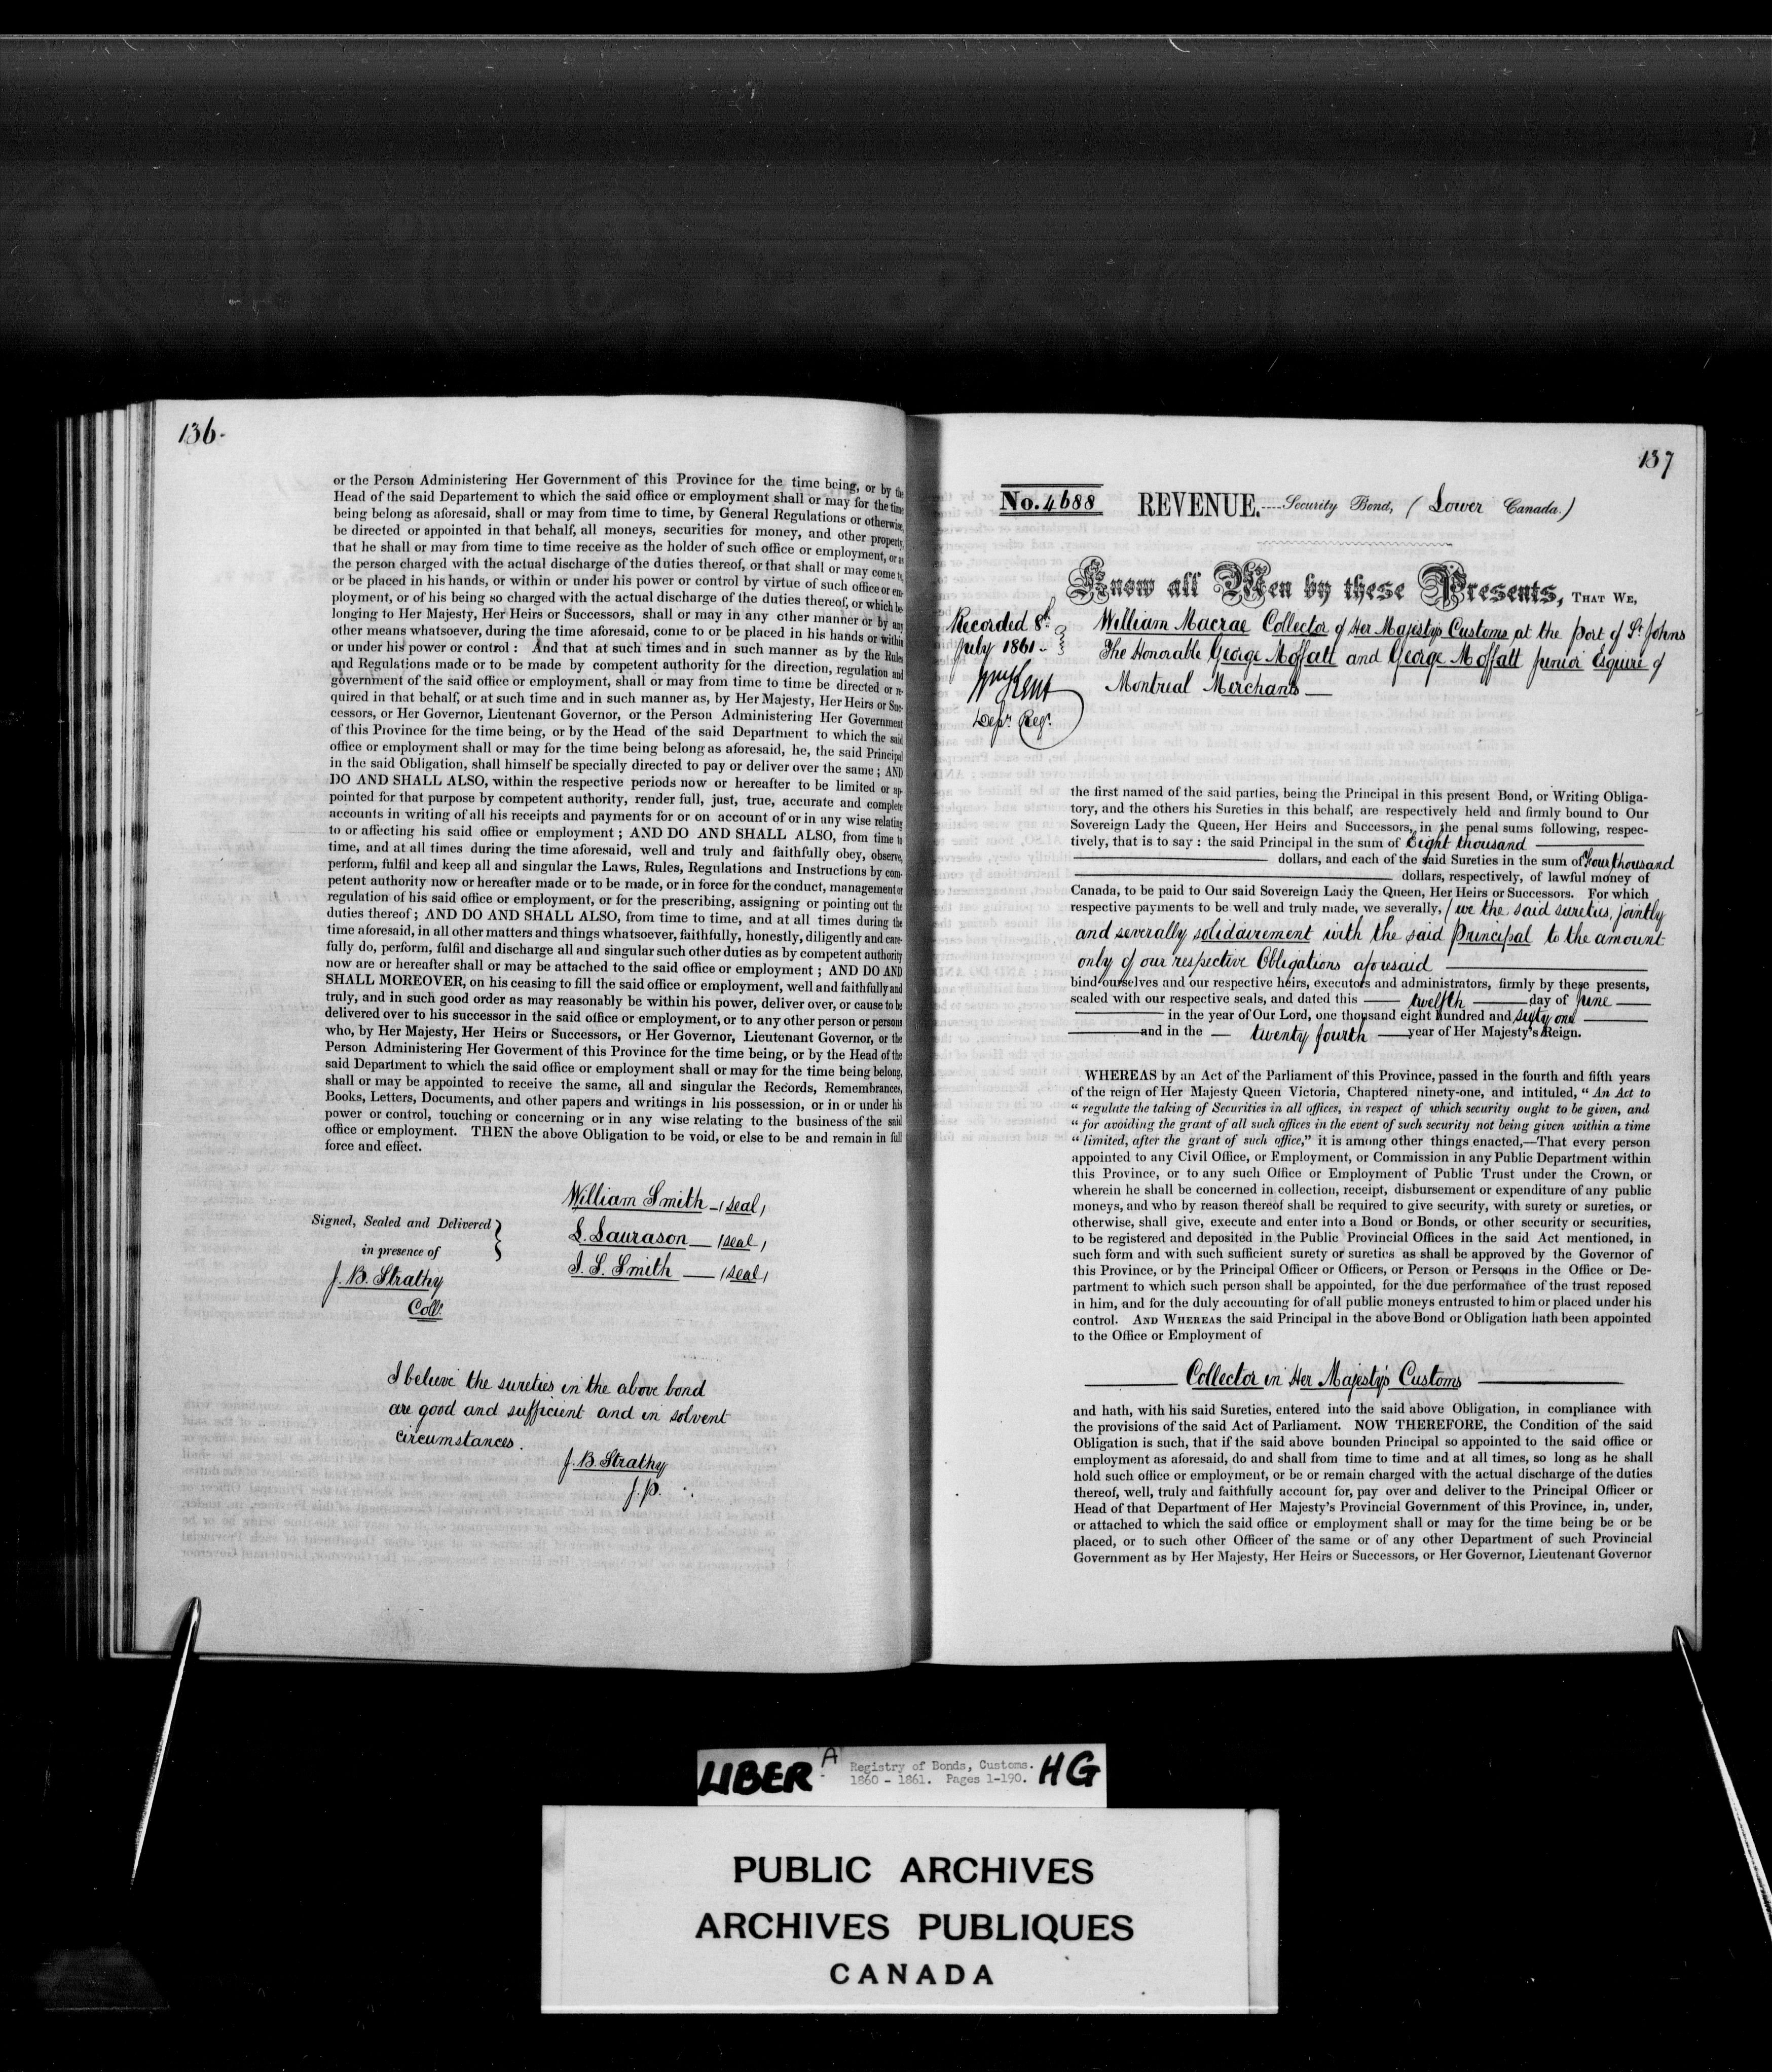 136.
or the Person Administering Her Government of this Province for the time being, or by the
Head of the said Departement to which the said office or employment shall or may for the time
being belong as aforesaid, shall or may from time to time, by General Regulations or otherwise,
be directed or appointed in that behalf, all moneys, securities for money, and other property,
that he shall or may from time to time receive as the holder of such office or employment, or as
the person charged with the actual discharge of the duties thereof, or that shall or may come to,
or be placed in his hands, or within or under his power or control by virtue of such office or em-
ployment, or of his being so charged with the actual discharge of the duties thereof, or which be-
longing to Her Majesty, Her Heirs or Successors, shall or may in any other manner or by any
other means whatsoever, during the time aforesaid, come to or be placed in his hands or within
or under his power or control : And that at such times and in such manner as by the Rules
and Regulations made or to be made by competent authority for the direction, regulation and
government of the said office or employment, shall or may from time to time be directed or re-
quired in that behalf, or at such time and in such manner as, by Her Majesty, Her Heirs or Suc-
cessors, or Her Governor, Lieutenant Governor, or the Person Administering Her Government
of this Province for the time being, or by the Head of the said Department to which the said
office or employment shall or may for the time being belong as aforesaid, he, the said Principal
in the said Obligation, shall himself be specially directed to pay or deliver over the same ; AND
DO AND SHALL ALSO, within the respective periods now or hereafter to be limited or ap-
pointed for that purpose by competent authority, render full, just, true, accurate and complete
accounts in writing of all his receipts and payments for or on account of or in any wise relating
to or affecting his said office or employment ; AND DO AND SHALL ALSO, from time to
time, and at all times during the time aforesaid, well and truly and faithfully obey, observe,
perform, fulfil and keep all and singular the Laws, Rules, Regulations and Instructions by com-
petent authority now or hereafter made or to be made, or in force for the conduct, management or
regulation of his said office or employment, or for the prescribing, assigning or pointing out the
duties thereof ; AND DO AND SHALL ALSO, from time to time, and at all times during the
time aforesaid, in all other matters and things whatsoever, faithfully, honestly, diligently and care-
fully do, perform, fulfil and discharge all and singular such other duties as by competent authority
now are or hereafter shall or may be attached to the said office or employment ; AND DO AND
SHALL MOREOVER, on his ceasing to fill the said office or employment, well and faithfully and
truly, and in such good order as may reasonably be within his power, deliver over, or cause to be
delivered over to his successor in the said office or employment, or to any other person or persons
who, by Her Majesty, Her Heirs or Successors, or Her Governor, Lieutenant Governor, or the
Person Administering Her Goverment of this Province for the time being, or by the Head of the
said Department to which the said office or employment shall or may for the time being belong,
shall or may be appointed to receive the same, all and singular the Records, Remembrances,
Books, Letters, Documents, and other papers and writings in his possession, or in or under his
power or control, touching or concerning or in any wise relating to the business of the said
office or employment. THEN the above Obligation to be void, or else to be and remain in full
force and effect.
William Smith (seal)
Signed, Sealed and Delivered
L. Laurason (seal)
in presence of
J. S. Smith (seal)
J. B. Strathy
Collr.
I believe the sureties in the above bond
are good and sufficient and in solvent
circumstances.
J. B. Strathy
J. P.
137
No. 4688 REVENUE.----Security Bond, (Lower Canada.)
Know all Men by these Presents, THAT WE,
Recorded 8th
July 1861
Wm Kent
Depy. Regr.
William Macrae Collector of Her Majesty's Customs at the port of St Johns
The Honorable George Moffatt and George Moffatt junior Esquire of
Montreal Merchants
the first named of the said parties, being the Principal in this present Bond, or Writing Obliga-
tory, and the others his Sureties in this behalf, are respectively held and firmly bound to Our
Sovereign Lady the Queen, Her Heirs and Successors, in the penal sums following, respec-
tively, that is to say : the said Principal in the sum of Eight thousand
dollars, and each of the said Sureties in the sum of Four thousand
dollars, respectively, of lawful money of
Canada, to be paid to Our said Sovereign Lady the Queen, Her Heirs or Successors. For which
respective payments to be well and truly made, we severally, / we the said sureties, jointly
and severally solidairement with the said Principal to the amount
only of our respective Obligations aforesaid
bind ourselves and our respective heirs, executors and administrators, firmly by these presents,
sealed with our respective seals, and dated this twelfth day of June
in the year of Our Lord, one thousand eight hundred and sixty one
and in the twenty fourth year of Her Majesty's Reign.
WHEREAS by an Act of the Parliament of this Province, passed in the fourth and fifth years
of the reign of Her Majesty Queen Victoria, Chaptered ninety-one, and intituled, " An Act to
" regulate the taking of Securities in all offices, in respect of which security ought to be given, and
" for avoiding the grant of all such offices in the event of such security not being given within a time
" limited, after the grant of such office," it is among other things enacted,—That every person
appointed to any Civil Office, or Employment, or Commission in any Public Department within
this Province, or to any such Office or Employment of Public Trust under the Crown, or
wherein he shall be concerned in collection, receipt, disbursement or expenditure of any public
moneys, and who by reason thereof shall be required to give security, with surety or sureties, or
otherwise, shall give, execute and enter into a Bond or Bonds, or other security or securities,
to be registered and deposited in the Public Provincial Offices in the said Act mentioned, in
such form and with such sufficient surety or sureties as shall be approved by the Governor of
this Province, or by the Principal Officer or Officers, or Person or Persons in the Office or De-
partment to which such person shall be appointed, for the due performance of the trust reposed
in him, and for the duly accounting for of all public moneys entrusted to him or placed under his
control. AND WHEREAS the said Principal in the above Bond or Obligation hath been appointed
to the Office or Employment of
Collector in Her Majesty's Customs
and hath, with his said Sureties, entered into the said above Obligation, in compliance with
the provisions of the said Act of Parliament. NOW THEREFORE, the Condition of the said
Obligation is such, that if the said above bounden Principal so appointed to the said office or
employment as aforesaid, do and shall from time to time and at all times, so long as he shall
hold such office or employment, or be or remain charged with the actual discharge of the duties
thereof, well, truly and faithfully account for, pay over and deliver to the Principal Officer or
Head of that Department of Her Majesty's Provincial Government of this Province, in, under,
or attached to which the said office or employment shall or may for the time being be or be
placed, or to such other Officer of the same or of any other Department of such Provincial
Government as by Her Majesty, Her Heirs or Successors, or Her Governor, Lieutenant Governor
LIBER A Registry of Bonds, Customs. HG
1860 - 1861. Pages 1-190.
PUBLIC ARCHIVES
ARCHIVES PUBLIQUES
CANADA